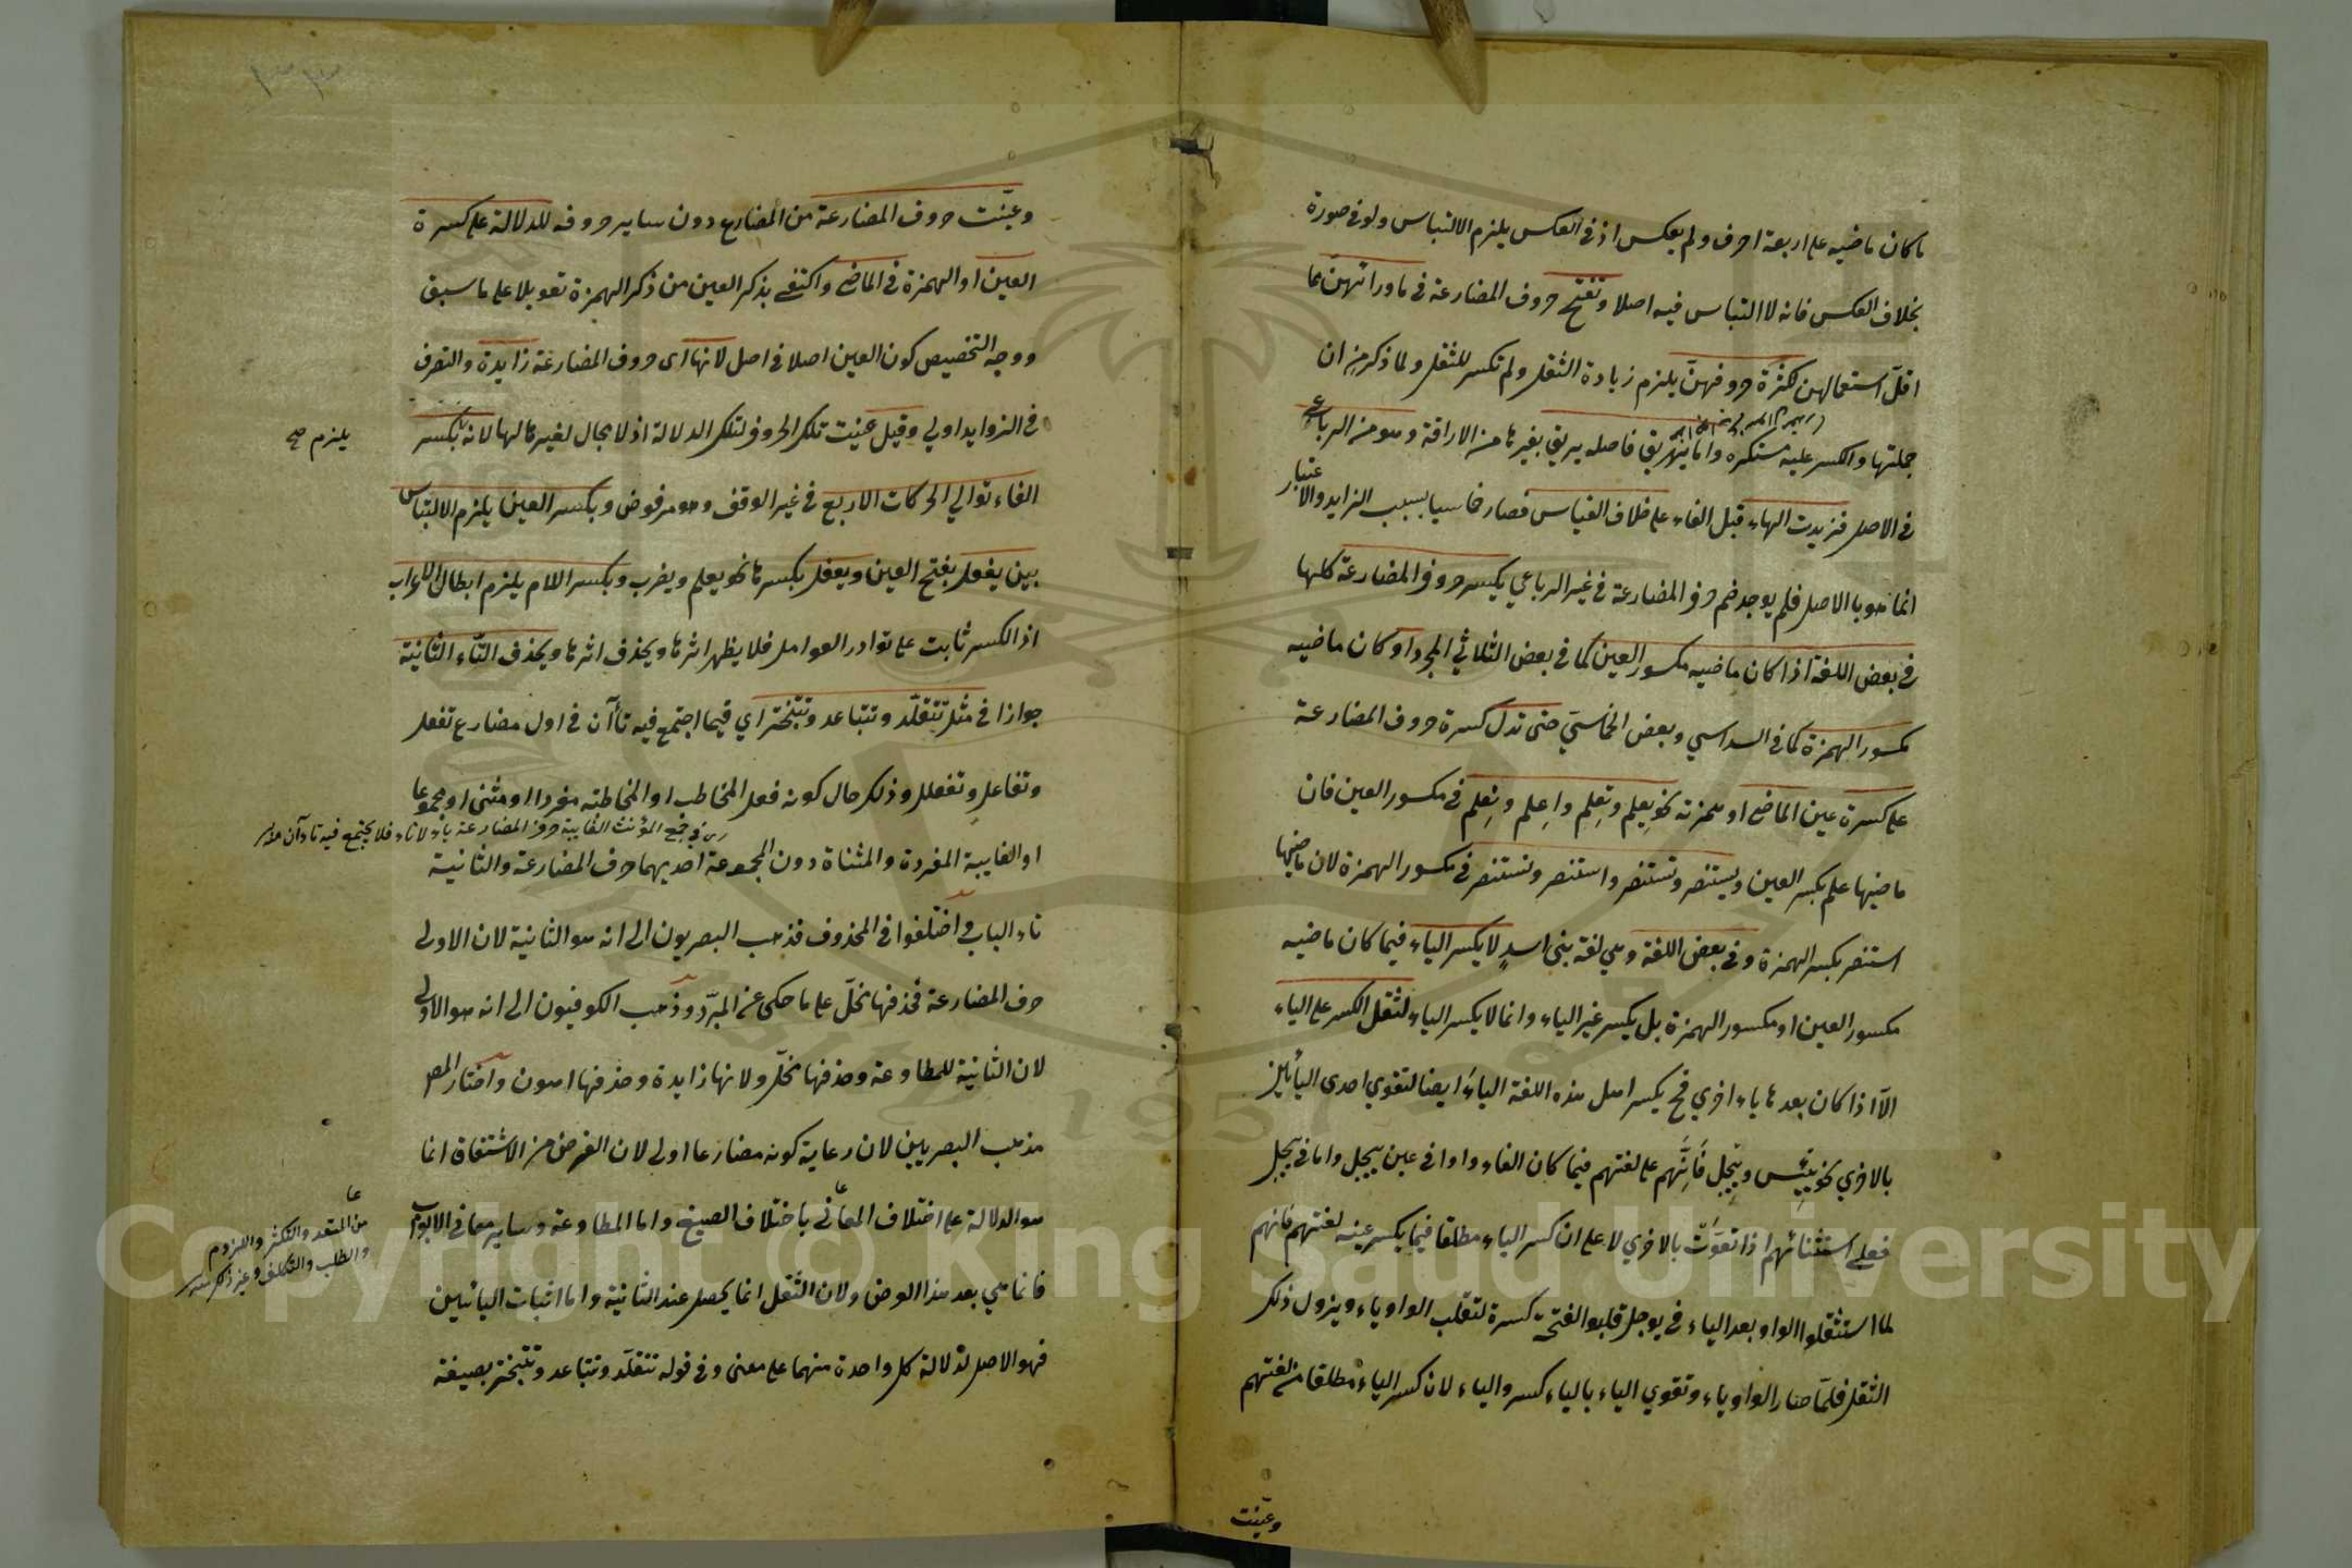 ما كان ماضيه على اربعة احرف ولم يعكس اذ في العكس يلزم الالتباس ولو في صورة
بخلاف العكس فانه لا التباس فيه اصلا وتفتح حروف المضارعة في ما وراءهن مما
اقل استعمالهن لكثرة حروفهن يلزم زيادة الثقل ولم تكسر للثقل ولما ذكر من ان
جملتها والكسر عليه مستكره واما يهريق فاصله يريق بغير ها من الاراقة وهو من الرباعي
في الاصل فزيدت الهاء قبل الفاء على خلاف القياس فصار خماسيا بسبب الزايد والاعتبار
انما هو با الاصل فلم يوجد ضم حرف المضارعة في غير الرباعي يكسر حروف المضارعة كلها
في بعض اللغة اذا كان ماضيه مكسور العين كما في بعض الثلاثي المجرد او كان ماضيه
مكسور الهمزة كما في السداسي وبعض الخماسي حتى تدل كسرة حروف المضارعة
على كسرة عين الماضي او همزته نحو يِعلم وتِعلِم واِعلم ونِعلم في مكسور العين فان
ماضيها علم بكسر العين ويستنصر وتستنصر واستنصر ونستنصر في مكسور الهمزة لان ماضيها
استنصر بكسر الهمزة وفي بعض اللغة وهي لغة بني اسدٍ لا يكسر الياء فيما كان ماضيه
مكسور العين او مكسور الهمزة بل يكسر غير الياء وانما لا يكسر الياء لثقل الكسر على الياء
الّا اذا كان بعدها ياء اخري فح يكسر اهل هذه اللغة الياء ايضا لتقوي احدى اليائين
بالاخري نحو يِيئس ويِيجل فانهم على لغتهم فيما كان الفاء واوا في عين ييجل واما في ييجل
فعلى استثنائهم اذا تقوّت بالاخري لا على ان كسر الياء مطلقا فيما يكسر عينه لغتهم فانهم
لما استثقلوا الواو بعد الياء في يوجل قلبوا الفتحة كسرة لتقلب الواو ياء ويزول ذلك
الثقل فلمّا صار الواو ياء وتقوي الياء بالياء كسروا الياء لان كسر الياء مطلقا من لغتهم
وعيّنت
وعيّنت حروف المضارعة من المضارع دون ساير حروفه للدلالة على كسرة
العين او الهمزة في الماضي واكتفي بذكر العين من ذكر الهمزة تعويلا على ما سبق
ووجه التخصيص كون العين اصلا في اصل لانها اى حروف المضارعة زايدة والتصرف
في الزوايد اولي وقيل عينت تلك الحروف لتلك الدلالة اذ لا مجال لغيرها لها لانه بكسر
يلزم صح
الفاء توالي الحركات الاربع في غير الوقف وهو مرفوض وبكسر العين يلزم الالتباس
بين يفعل بفتح العين ويفعل بكسرها نحو يعلم ويضرب وبكسر اللام يلزم ابطال الاعراب
اذ الكسر ثابت على توارد العوامل فلا يظهر اثرها ويحذف اثرها ويحذف التاء الثانية
جوازا في مثل تتقلّد وتتباعد وتتبختر اي فيما اجتمع فيه تاآن في اول مضارع تفعل
وتفاعل وتفعلل وذلك حال كونه فعل المخاطب او المخاطبة مفردا او مثنى او مجموعا
في جمع المؤنث الغايبة حرف المضارعة ياء لا تاء فلا يجتمع فيه تاءآن
او الغايبة المفردة والمثناة دون المجموعة احديهما حرف المضارعة والثانية
تاء الباب واختلفوا في المحذوف فذهب البصريون الى انه هو الثانية لان الاولى
حرف المضارعة فحذفها مخلّ على ما حكى عن المبرّد وذهب الكوفيون الى انه هو الاولى
لان الثانية للمطاوعة وحذفها مخلّ ولانها زايدة وحذفها اهون واختار المص
مذهب البصريين لان رعاية كونه مضارعا اولى لان الغرض من الاشتقاق انما
هو الدلالة على اختلاف المعاني باختلاف الصيغ واما المطاوعة وساير معاني الابواب
من التعد والتكثر واللزوم
والطلب والتكلف وغير ذلك
فانما هي بعد هذا الغرض ولان الثقل انما يحصل عند الثانية واما اثبات اليائين
فهو الاصل لدلالة كل واحدة منهما على معنى وفي قوله تتقلّد وتتباعد وتتبختر بصيغة
Copyright © King Saud University
1957